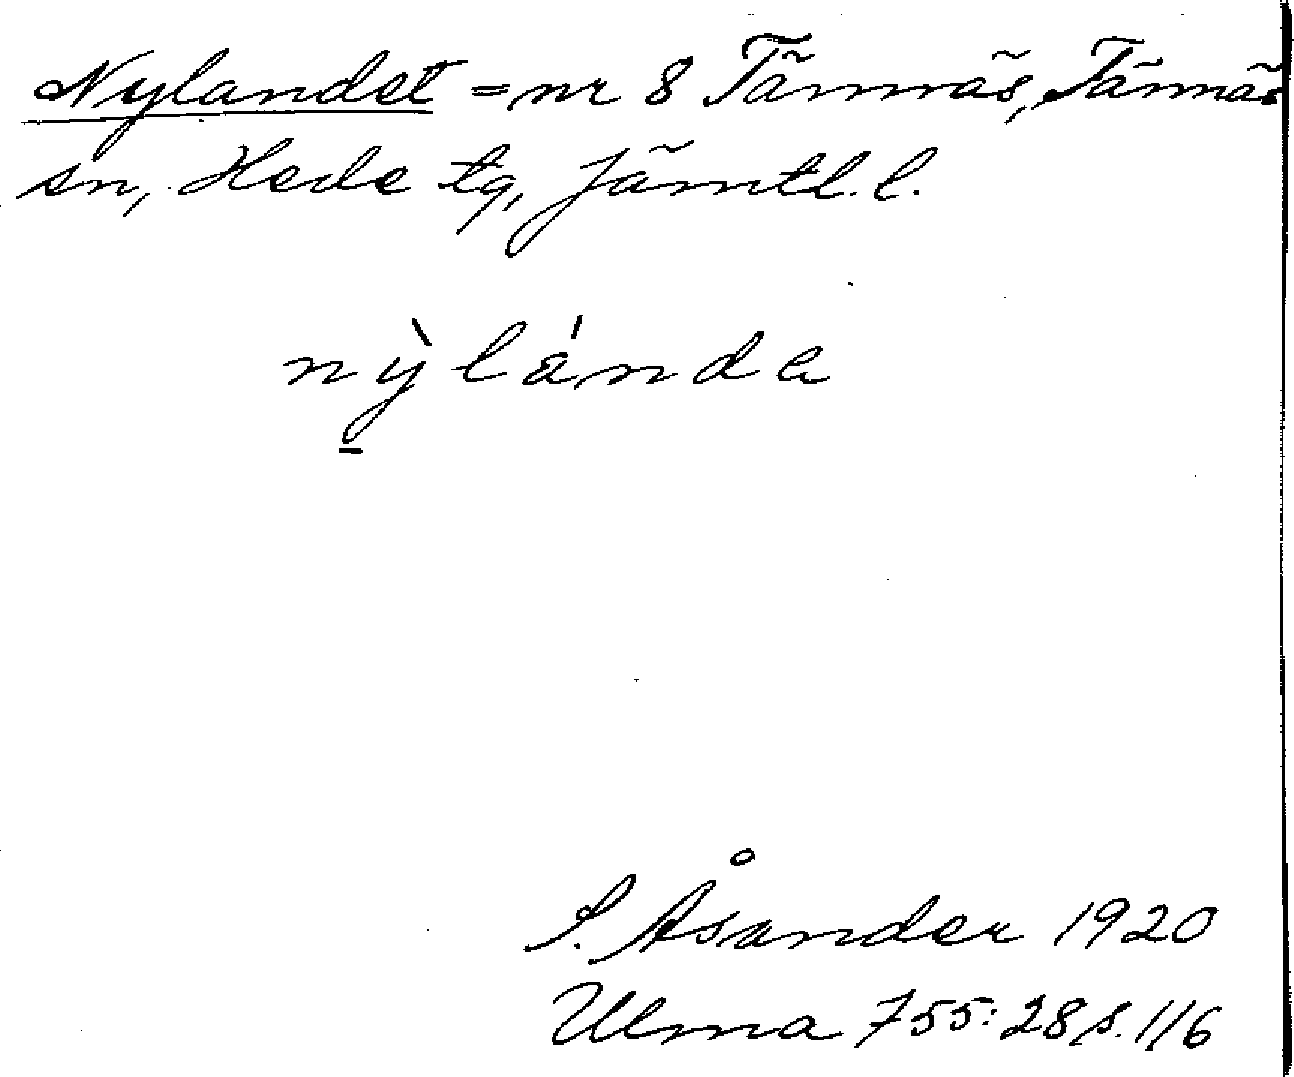 Nylandet = nr 8 Tännäs, Tännäs
sn, Hede tg, Jämtl. l.
nỳlánda
S. Åsander 1920
Ulma 755:28 s. 116